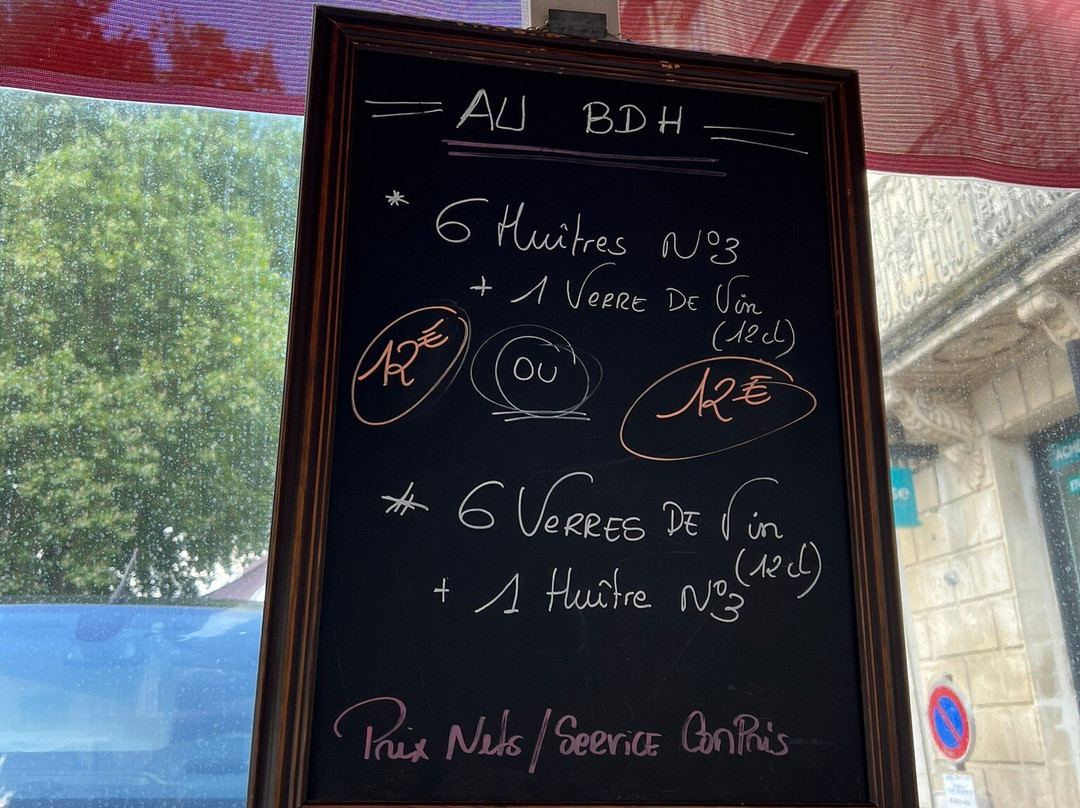 AU BDH
* 6 Huîtres N°3
+ 1 Verre de Vin
(12cl)
12€ OU 12€
* 6 Verres de Vin
(12cl)
+ 1 Huître N°3
Prix Nets / Service Compris
se
ACH